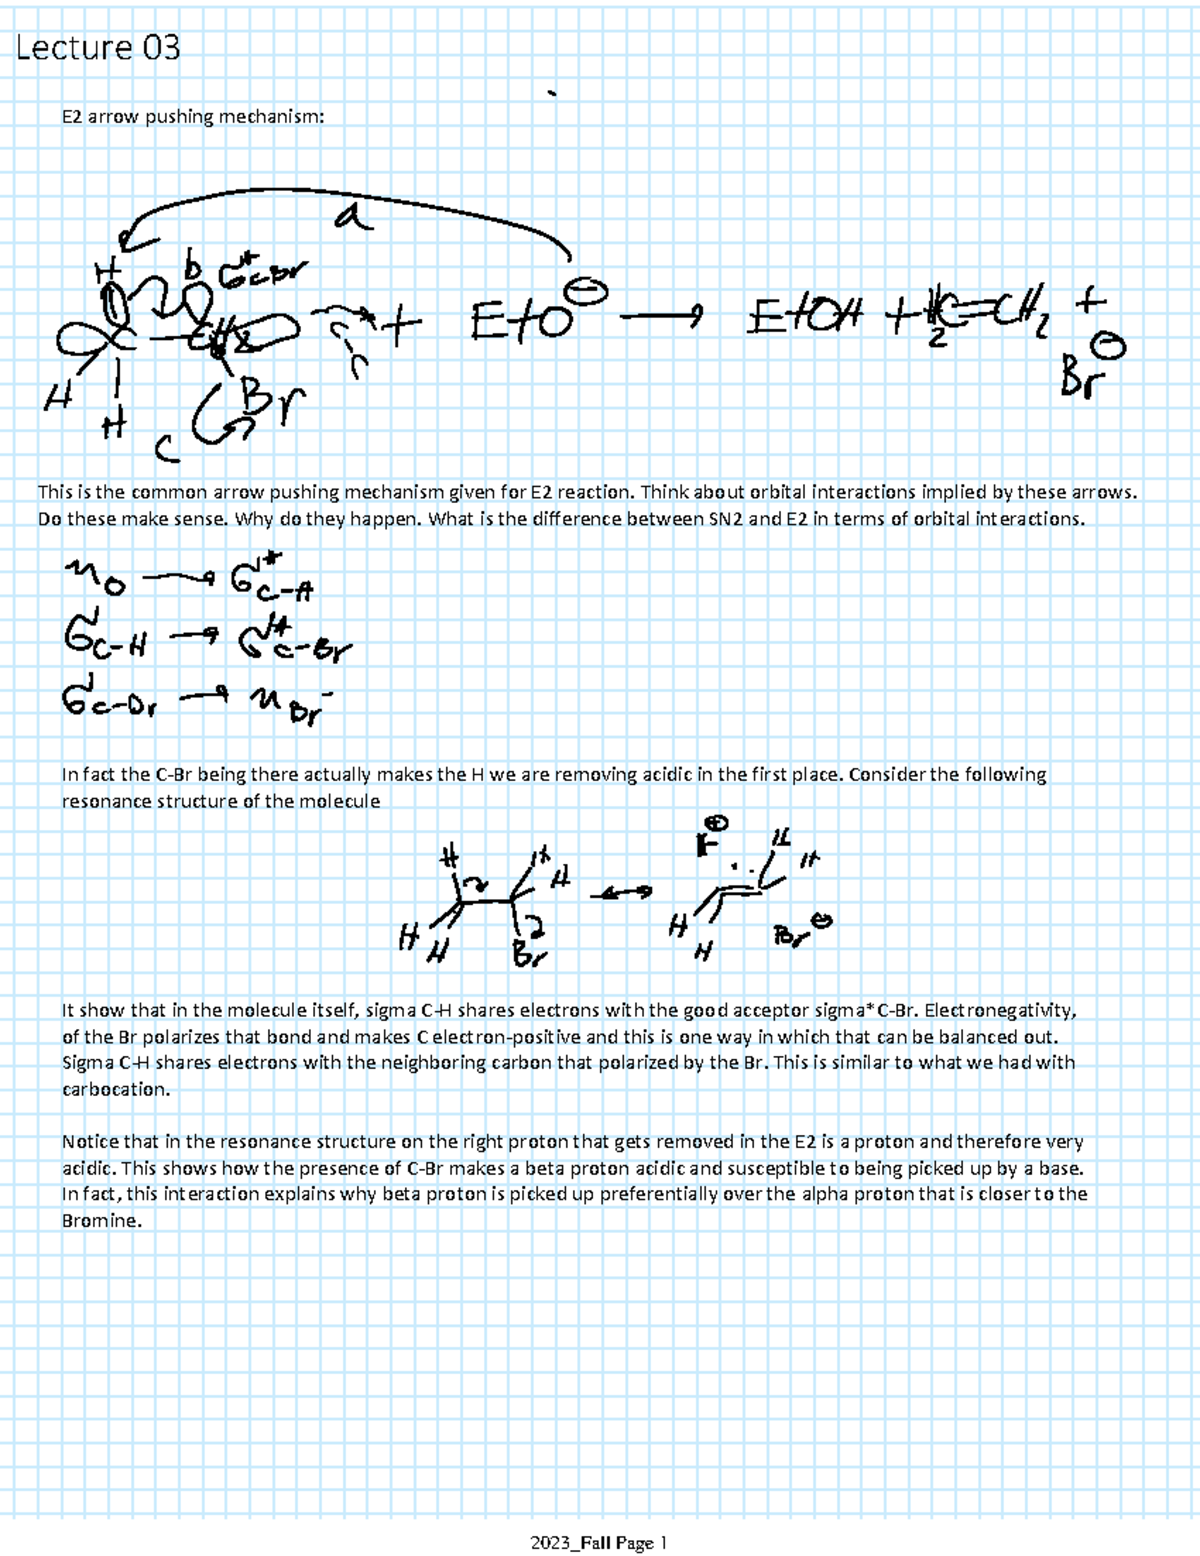 Lecture 03
E2 arrow pushing mechanism:
a
H b σ* C-Br
C - CH2 + EtO⊖ → EtOH + H2C=CH2 +
H Br Br⊖
H
c
This is the common arrow pushing mechanism given for E2 reaction. Think about orbital interactions implied by these arrows.
Do these make sense. Why do they happen. What is the difference between SN2 and E2 in terms of orbital interactions.
nO → σ* C-H
σ C-H → σ* C-Br
σ C-Br → n Br-
In fact the C-Br being there actually makes the H we are removing acidic in the first place. Consider the following
resonance structure of the molecule
H H H ↔ ⊕ H H
H H Br H H Br⊖
It show that in the molecule itself, sigma C-H shares electrons with the good acceptor sigma* C-Br. Electronegativity,
of the Br polarizes that bond and makes C electron-positive and this is one way in which that can be balanced out.
Sigma C-H shares electrons with the neighboring carbon that polarized by the Br. This is similar to what we had with
carbocation.
Notice that in the resonance structure on the right proton that gets removed in the E2 is a proton and therefore very
acidic. This shows how the presence of C-Br makes a beta proton acidic and susceptible to being picked up by a base.
In fact, this interaction explains why beta proton is picked up preferentially over the alpha proton that is closer to the
Bromine.
2023_Fall Page 1